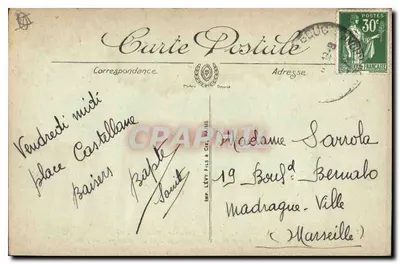 Carte Postale
Correspondance
Adresse
POSTES
30c
Vendredi midi
place Castellane
Baisers
Bapt
IMP. LÉVY FILS & CIE, PARIS
CPARAMA
Madame Sarrola
19 Boulᵈ Bernabo
Madrague-Ville
(Marseille)